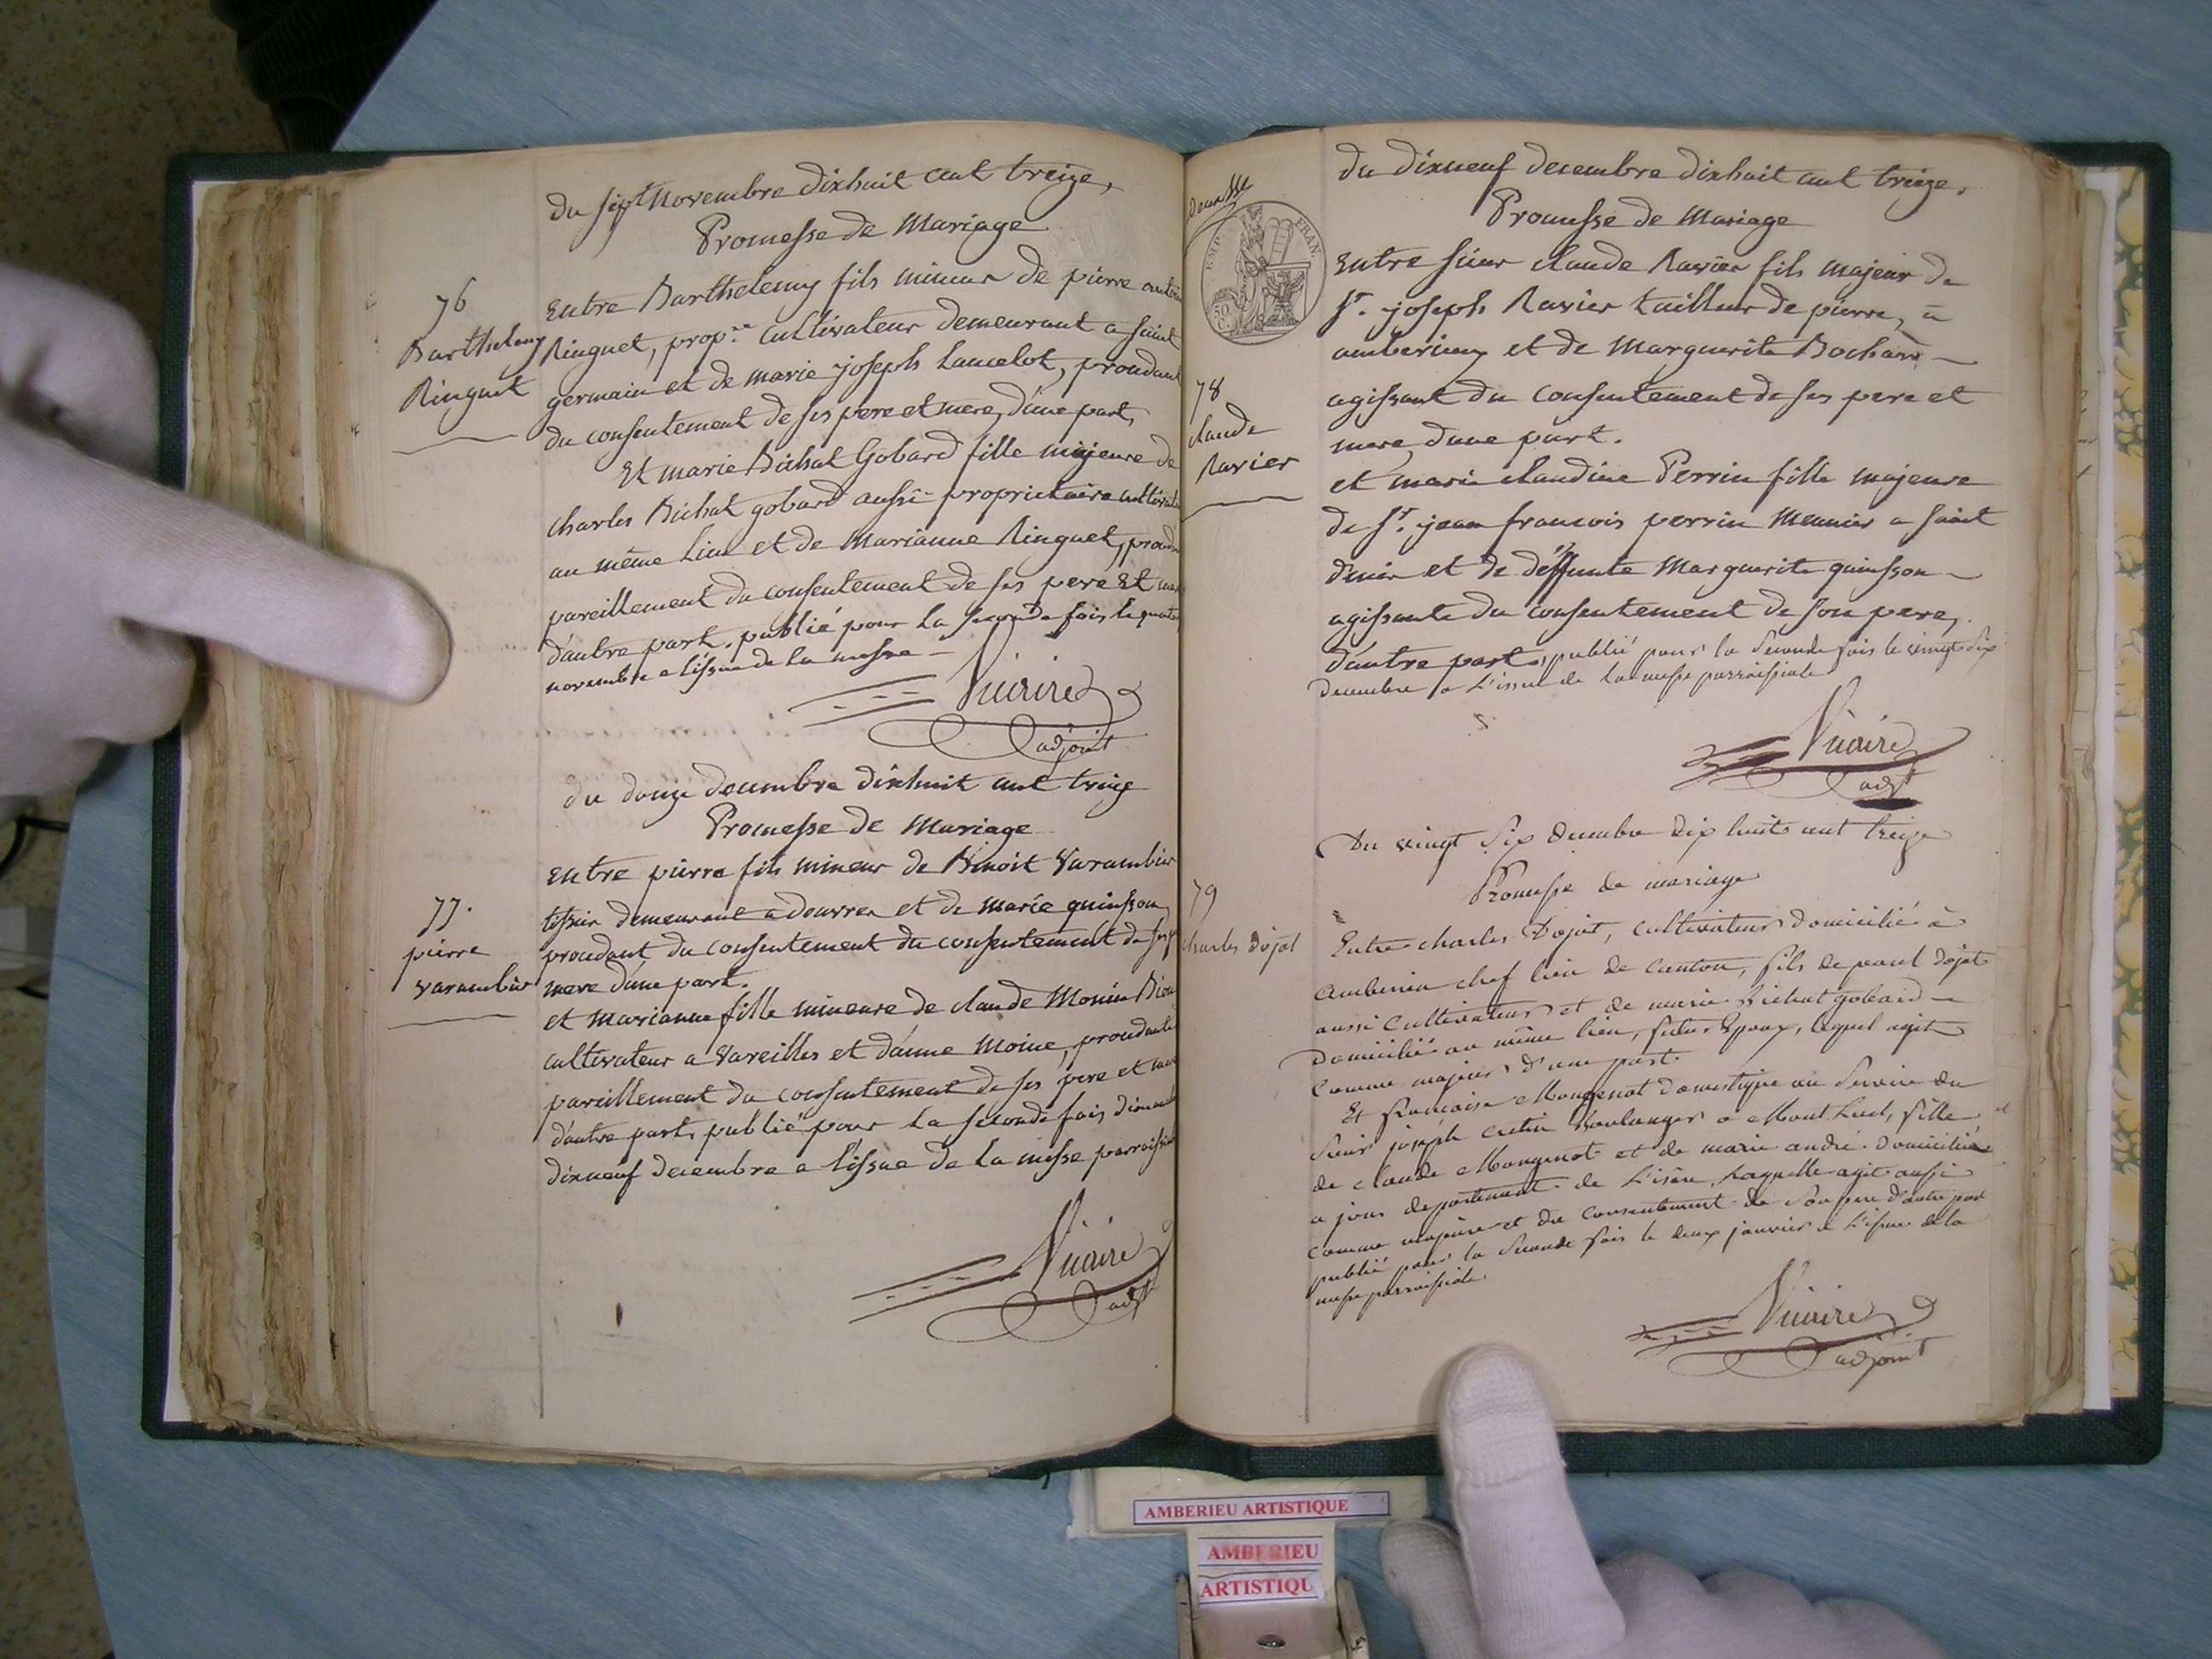 du sept Novembre dixhuit cent treize,
Promesse de Mariage
76
Barthelemy
Ringuet
Entre Barthelemy fils mineur de pierre
Ringuet, prop.re cultivateur demeurant a saint
germain et de marie joseph Lancelot, procedant
du consentement de ses pere et mere, d'une part,
Et marie Bichat Gobard fille majeure de
charles Bichat gobard aussi proprietaire
au même Lieu et de Marianne Ringuet,
pareillement du consentement de ses pere et
d'autre part, publié pour la seconde fois le
novembre a l'issue de la messe
Vicaire
adjoint
du douze decembre dixhuit cent treize
Promesse de Mariage
77.
pierre
varambier
entre pierre fils mineur de Benoit Varambier
tissier demeurant a douvres et de marie quinson
procedant du consentement du consentement de ses
mere d'une part.
et marianne fille mineure de claude Monin
cultivateur a Vareilles et d'anne Moine, procedante
pareillement du consentement de ses pere et mere
d'autre part, publié pour la seconde fois dimanche
dixneuf decembre a l'issue de la messe
Vicaire
adjt
du dixneuf decembre dixhuit cent treize.
Promesse de Mariage
EMP. FRAN.
50 C.
78
claude
Ravier
Entre sieur claude Ravier fils majeur de
Sr. joseph Ravier tailleur de pierre, a
amberieux et de Marguerite Bochard
agissant du consentement de ses pere et
mere, d'une part.
et marie claudine Perrin fille majeure
de Sr. jean francois perrin Meunier a saint
denis et de déffunte Marguerite quinsson
agissante du consentement de son pere,
d'autre part, publié pour la seconde fois le vingt six
decembre a L'issue de la messe parroissiale
Vicaire
adjt
Du vingt six decembre dix huit cent treize
Promesse de mariage
79
charles dojat
Entre charles Dojat, cultivateur domicilié à
Amberieu chef lieu de canton, fils de paul dojat
aussi cultivateur et de marie Bichat gobard
domicilié au même lieu, futur Epoux, lequel agit
comme majeur d'une part.
Et francoise Mongenot domestique au service du
sieur joseph cretin Boulanger a Mont Luel, fille
de claude Mongenot et de marie andré domicilié
a jons departement de L'isère, Laquelle agit aussi
comme majeure et du consentement de son pere d'autre part
publié pour la seconde fois le deux janvier a L'issue de la
messe parroissiale.
Vicaire
adjoint
AMBERIEU ARTISTIQUE
AMBERIEU
ARTISTIQU